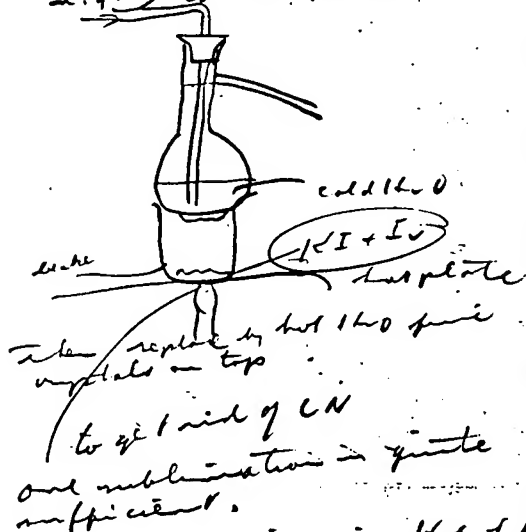 cold H2O
KI + I2
hotplate
Then replace by hot H2O pure
crystals on top
to get rid of CN
one sublimation is quite
sufficient.